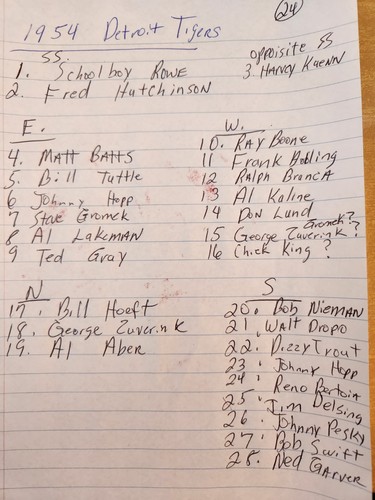 24
1954 Detroit Tigers
SS.
1. Schoolboy Rowe
2. Fred Hutchinson
opposite SS
3. Harvey Kuenn
E.
4. Matt Batts
5. Bill Tuttle
6 Johnny Hopp
7 Steve Gromek
8 Al Lakeman
9 Ted Gray
W.
10. Ray Boone
11 Frank Bolling
12 Ralph Branca
13 Al Kaline
14 Don Lund
Gromek?
15 George Zuverink?
16 Chick King?
N
17. Bill Hoeft
18. George Zuverink
19. Al Aber
S
20. Bob Nieman
21. Walt Dropo
22. Dizzy Trout
23. Johnny Hopp
24. Reno Bertoia
25. Jim Delsing
26. Johnny Pesky
27. Bob Swift
28. Ned Garver